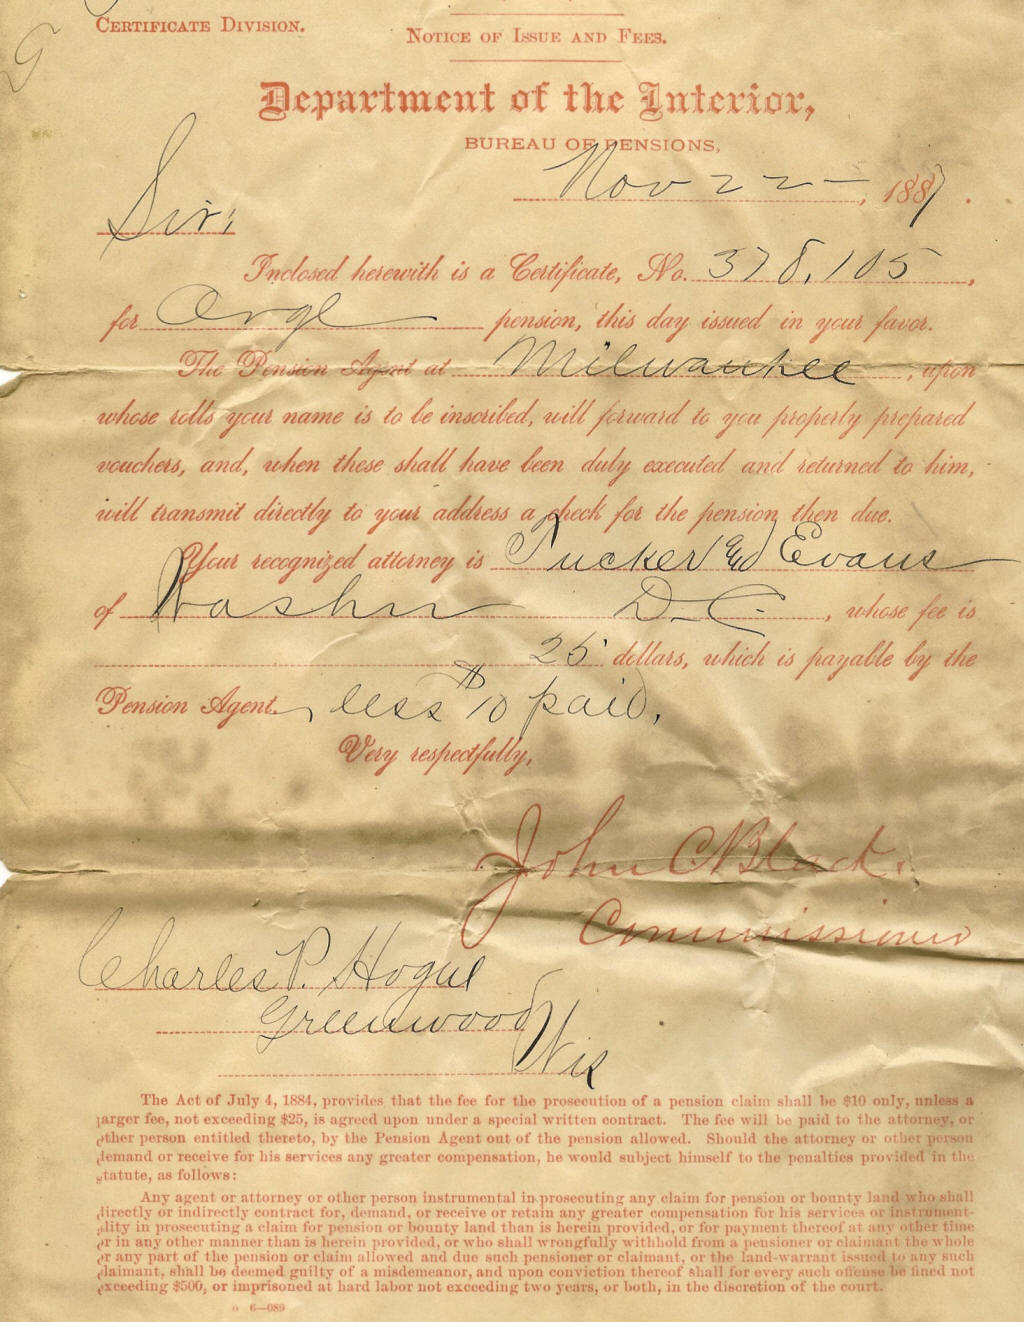 CERTIFICATE DIVISION.
NOTICE OF ISSUE AND FEES.
G
Department of the Interior,
BUREAU OF PENSIONS,
Nov 22 –, 1887.
Sir:
Inclosed herewith is a Certificate, No. 378,105,
for Orgl pension, this day issued in your favor.
The Pension Agent at Milwaukee, upon
whose rolls your name is to be inscribed, will forward to you properly prepared
vouchers, and, when these shall have been duly executed and returned to him,
will transmit directly to your address a check for the pension then due.
Your recognized attorney is Tucker and Evans
of Washn D.C., whose fee is
25 dollars, which is payable by the
Pension Agent, less $10 paid.
Very respectfully,
John C Black.
Commissioner
Charles P. Hogue
Greenwood
Wis
The Act of July 4, 1884, provides that the fee for the prosecution of a pension claim shall be $10 only, unless a
larger fee, not exceeding $25, is agreed upon under a special written contract. The fee will be paid to the attorney, or
other person entitled thereto, by the Pension Agent out of the pension allowed. Should the attorney or other person
demand or receive for his services any greater compensation, he would subject himself to the penalties provided in the
statute, as follows:
Any agent or attorney or other person instrumental in prosecuting any claim for pension or bounty land who shall
directly or indirectly contract for, demand, or receive or retain any greater compensation for his services or instrument-
ality in prosecuting a claim for pension or bounty land than is herein provided, or for payment thereof at any other time
or in any other manner than is herein provided, or who shall wrongfully withhold from a pensioner or claimant the whole
or any part of the pension or claim allowed and due such pensioner or claimant, or the land-warrant issued to any such
claimant, shall be deemed guilty of a misdemeanor, and upon conviction thereof shall for every such offense be fined not
exceeding $500, or imprisoned at hard labor not exceeding two years, or both, in the discretion of the court.
6—089